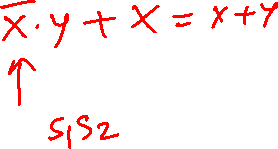 x̅·y + x = x+y
S₁S₂